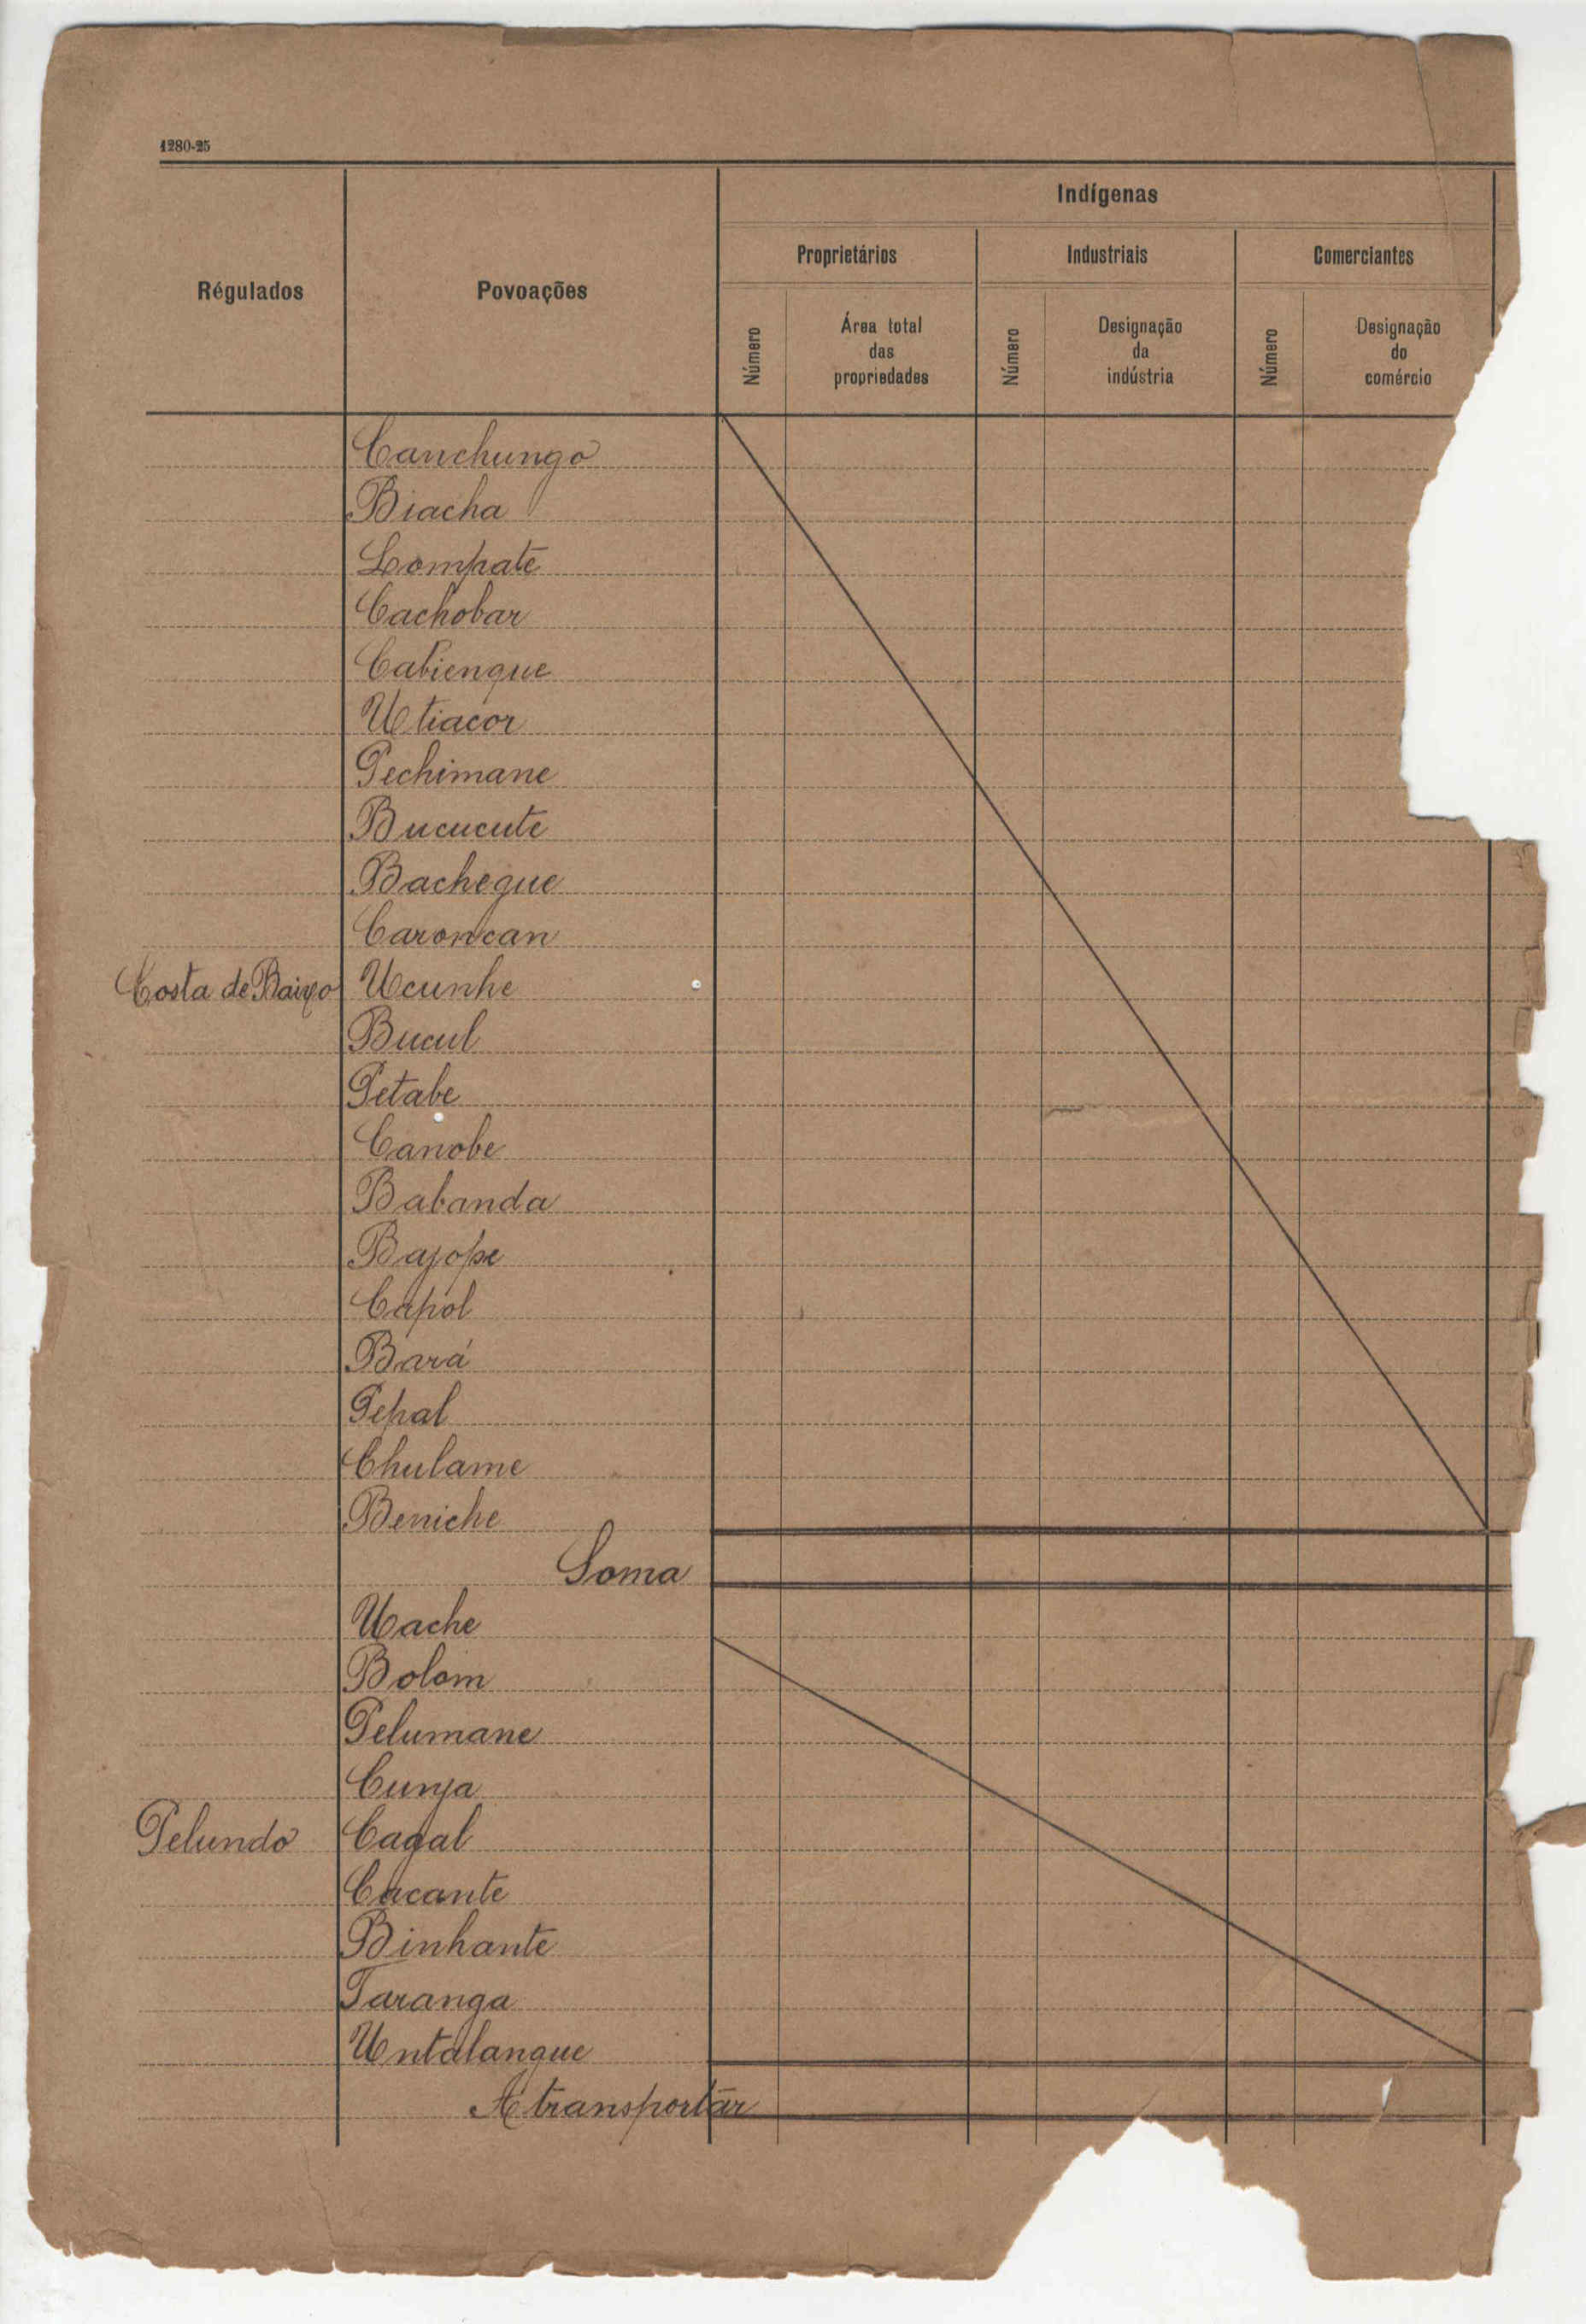 1280-25
Indígenas
Régulados Povoações Proprietários Industriais Comerciantes
Número Área total das propriedades Número Designação da indústria Número Designação do comércio
Canchungo
Biacha
Lompate
Cachobar
Cabienque
Utiacor
Pechimane
Bucucute
Bacheque
Caroncan
Costa de Baixo Ucunhe
Bucul
Petabe
Canobe
Babanda
Bajope
Capol
Bará
Pepal
Chulame
Beniche
Soma
Uache
Bolom
Pelumane
Cunja
Pelundo Cagal
Cacante
Binhante
Taranga
Untalangue
A transportar